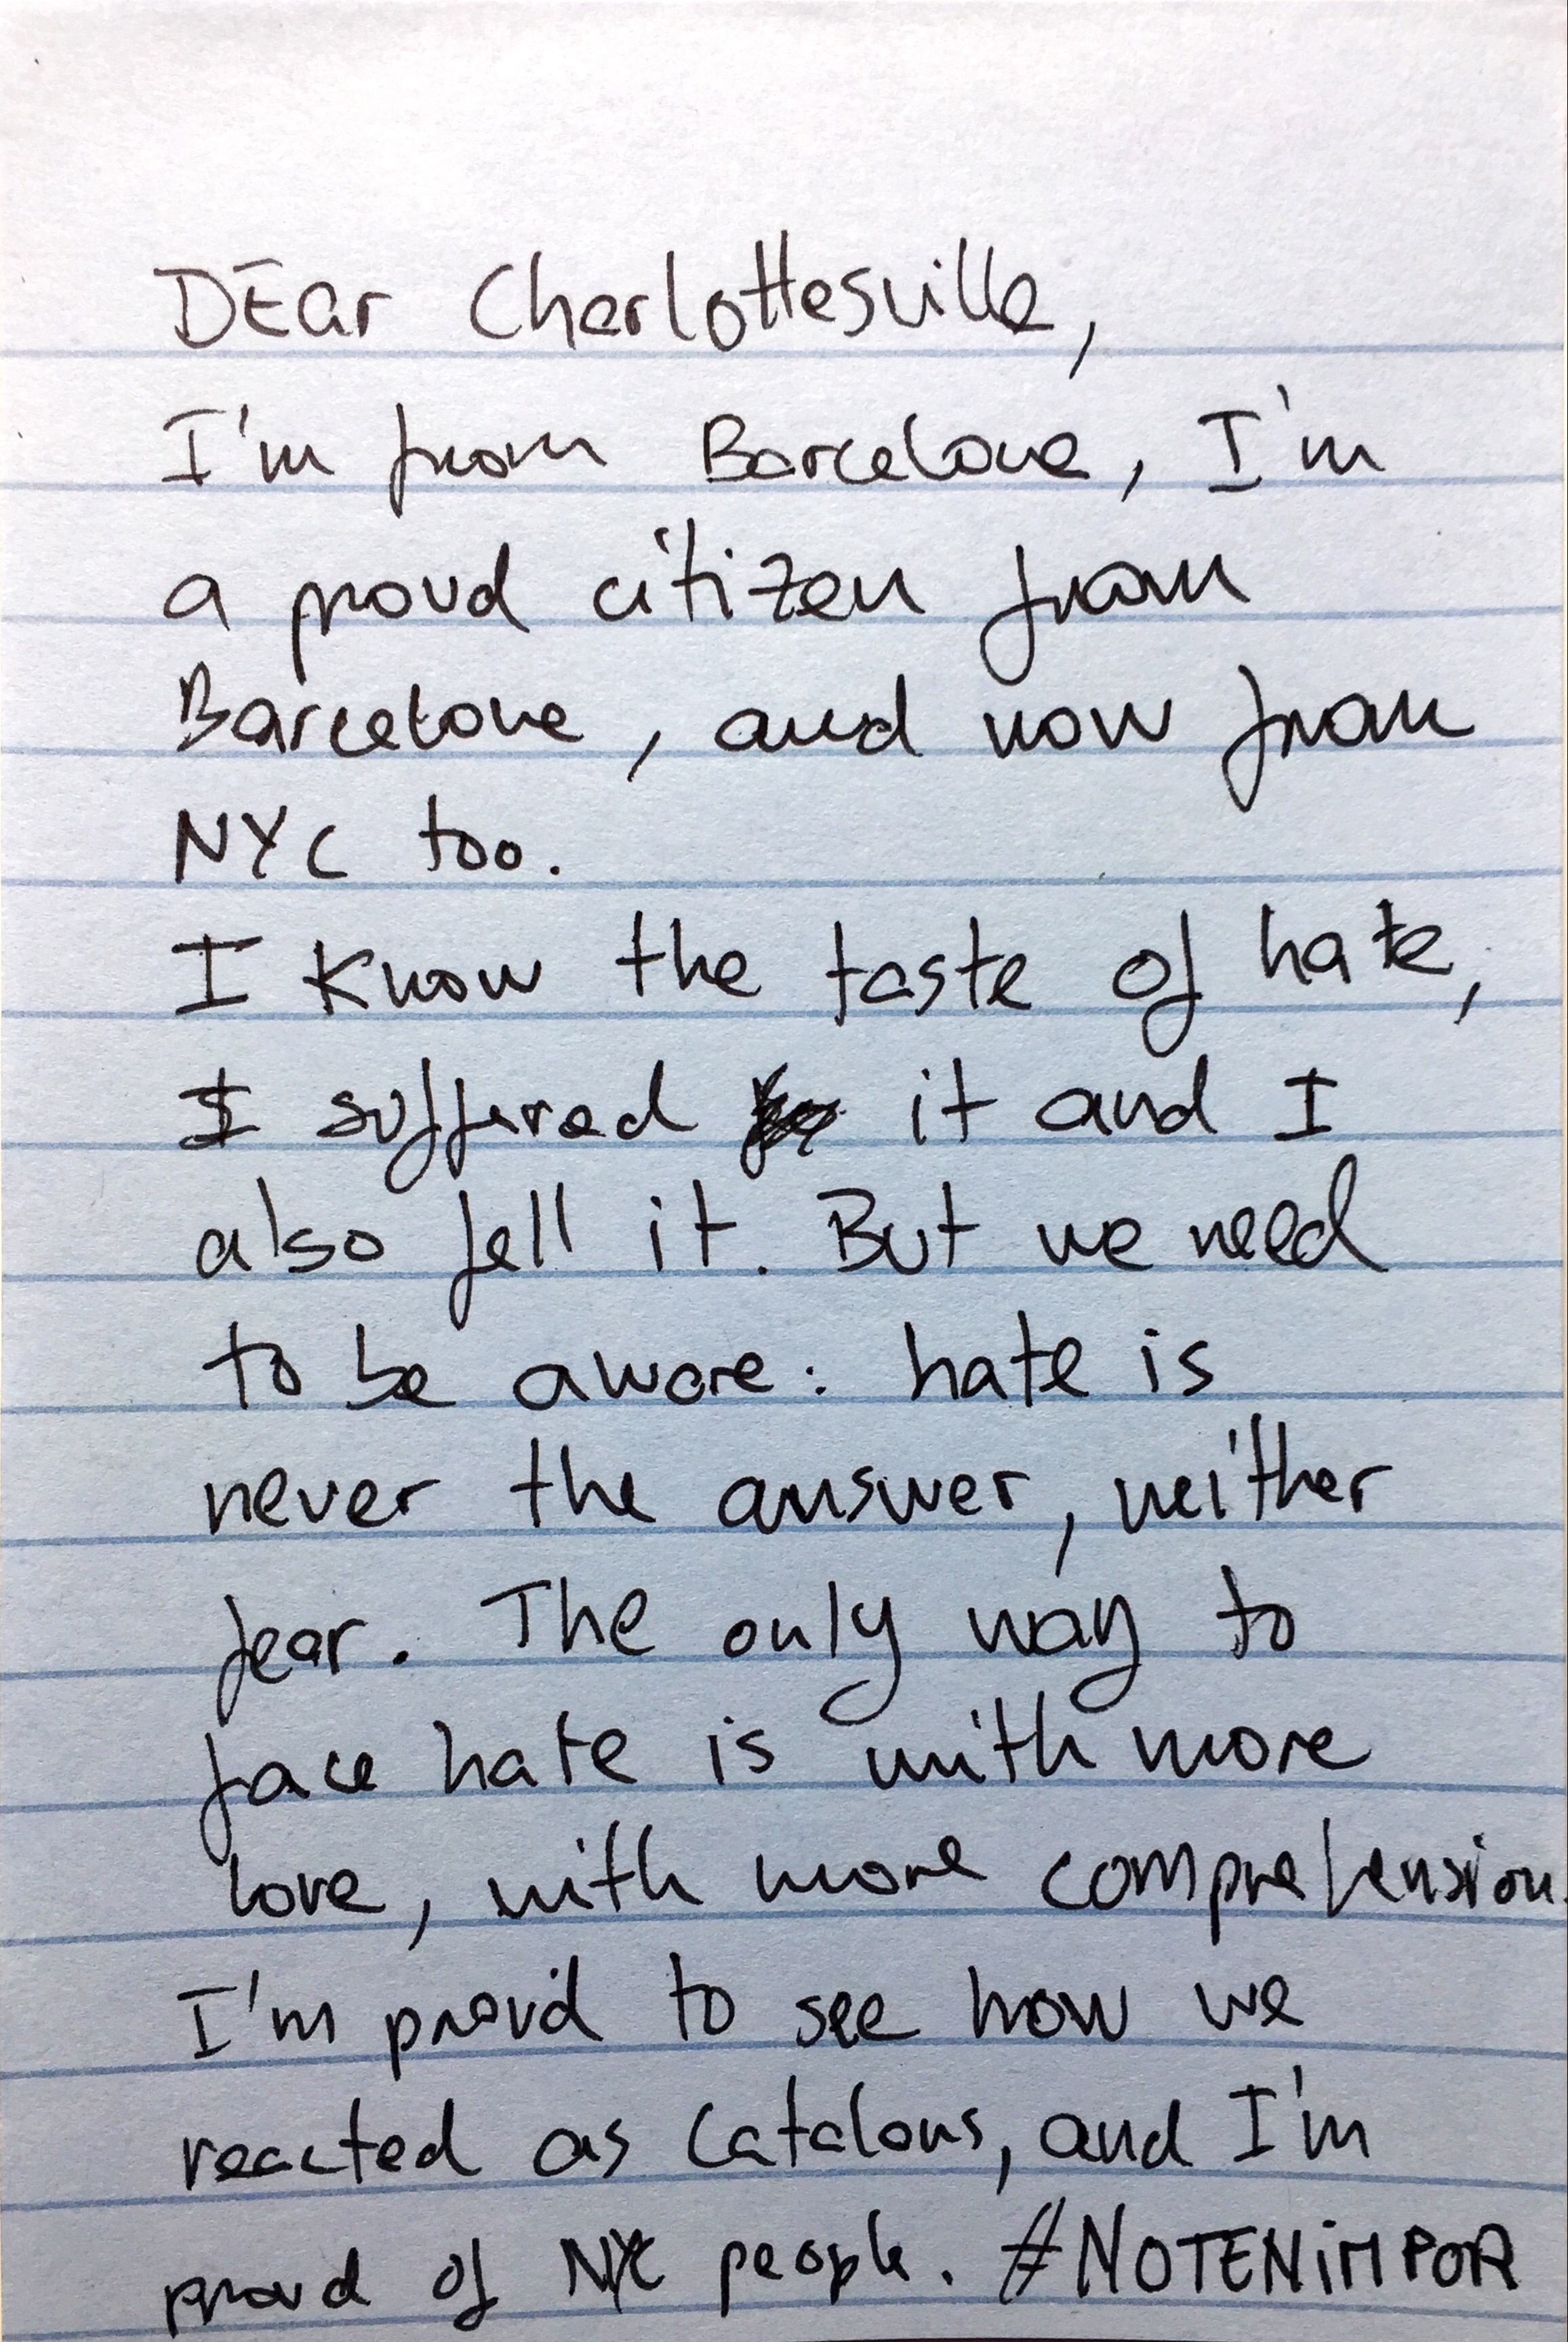 Dear Charlottesville,
I'm from Barcelona, I'm
a proud citizen from
Barcelona, and now from
NYC too.
I know the taste of hate,
I suffered it and I
also fell it. But we need
to be aware: hate is
never the answer, neither
fear. The only way to
face hate is with more
love, with more comprehension.
I'm proud to see how we
reacted as Catalans, and I'm
proud of NYC people. #NOTENIMPOR